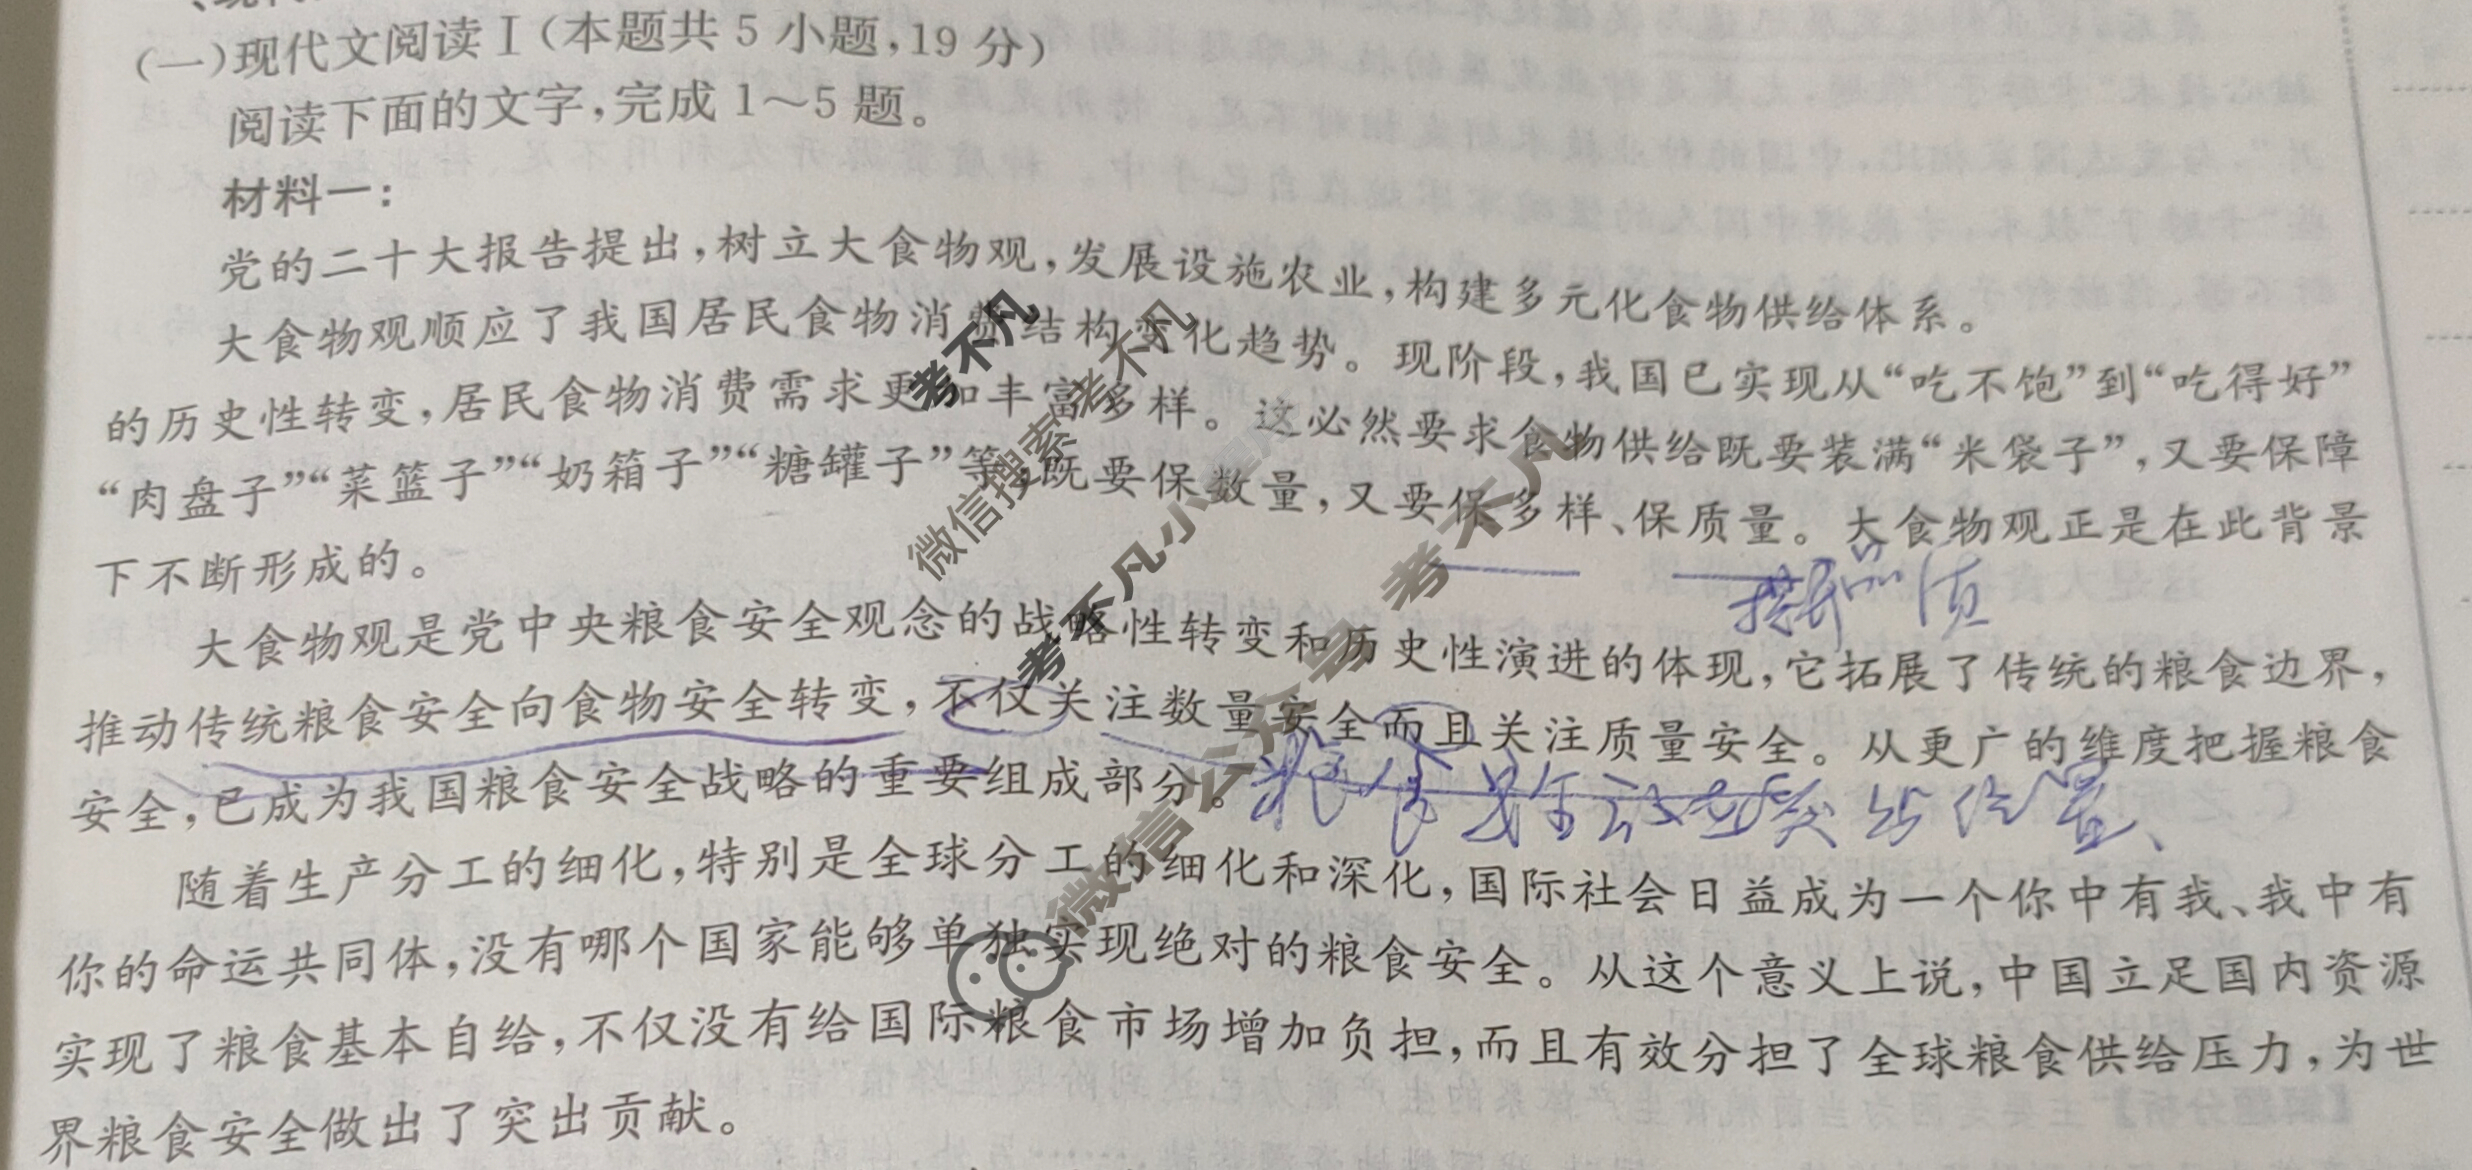 (一)现代文阅读Ⅰ(本题共5小题,19分)
阅读下面的文字,完成1～5题。
材料一:
党的二十大报告提出,树立大食物观,发展设施农业,构建多元化食物供给体系。
大食物观顺应了我国居民食物消费结构变化趋势。现阶段,我国已实现从“吃不饱”到“吃得好”
的历史性转变,居民食物消费需求更加丰富多样。这必然要求食物供给既要装满“米袋子”,又要保障
“肉盘子”“菜篮子”“奶箱子”“糖罐子”等,既要保数量,又要保多样、保质量。大食物观正是在此背景
下不断形成的。
大食物观是党中央粮食安全观念的战略性转变和历史性演进的体现,它拓展了传统的粮食边界,
推动传统粮食安全向食物安全转变,不仅关注数量安全而且关注质量安全。从更广的维度把握粮食
安全,已成为我国粮食安全战略的重要组成部分。
随着生产分工的细化,特别是全球分工的细化和深化,国际社会日益成为一个你中有我、我中有
你的命运共同体,没有哪个国家能够单独实现绝对的粮食安全。从这个意义上说,中国立足国内资源
实现了粮食基本自给,不仅没有给国际粮食市场增加负担,而且有效分担了全球粮食供给压力,为世
界粮食安全做出了突出贡献。
考不凡
微信搜索 考不凡
考不凡小
微信公众号 考不凡